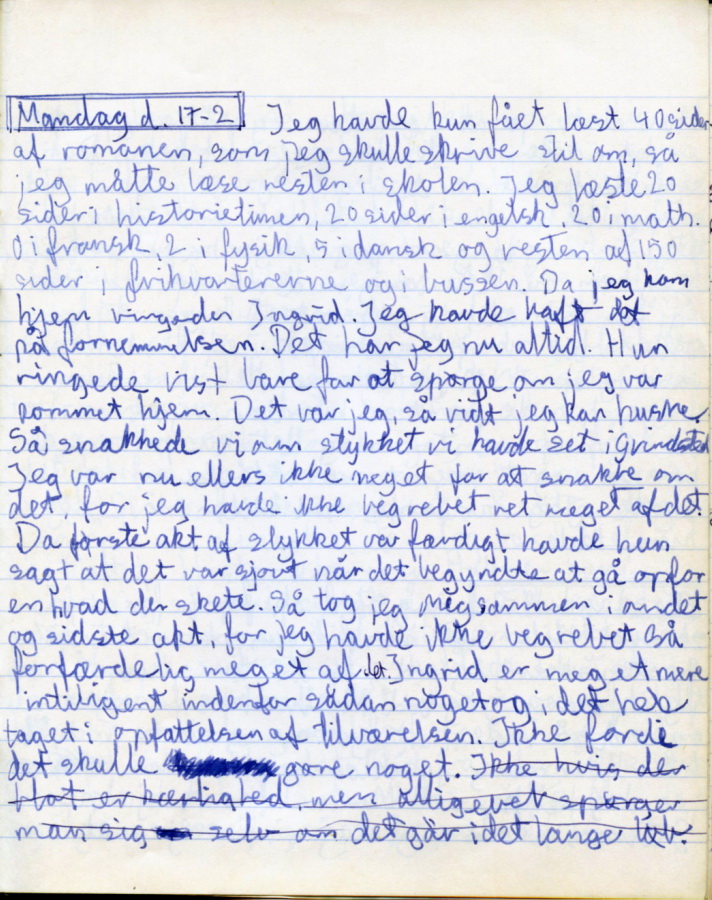 Mandag d. 17-2 Jeg havde kun fået læst 40 sider
af romanen, som jeg skulle skrive stil om, så
jeg måtte læse resten i skolen. Jeg læste 20
sider i historietimen, 20 sider i engelsk, 20 i math.
0 i fransk, 2 i fysik, 5 i dansk og resten af 150
sider i frikvartererne og i bussen. Da jeg kom
hjem ringede Ingrid. Jeg havde haft det
på fornemmelsen. Det har jeg nu altid. Hun
ringede vist bare for at spørge om jeg var
kommet hjem. Det var jeg, så vidt jeg kan huske.
Så snakkede vi om stykket vi havde set i Grindsted
Jeg var nu ellers ikke meget for at snakke om
det, for jeg havde ikke begrebet ret meget af det.
Da første akt af stykket var færdigt havde hun
sagt at det var sjovt når det begyndte at gå op for
en hvad der skete. Så tog jeg mig sammen i andet
og sidste akt, for jeg havde ikke begrebet så
forfærdelig meget af det. Ingrid er meget mere
intiligent indenfor sådan noget og i det hele
taget i opfattelsen af tilværelsen. Ikke fordi
det skulle gøre noget. Ikke hvis der
blot er kærlighed, men alligevel spørger
man sig selv om det går i det lange løb.